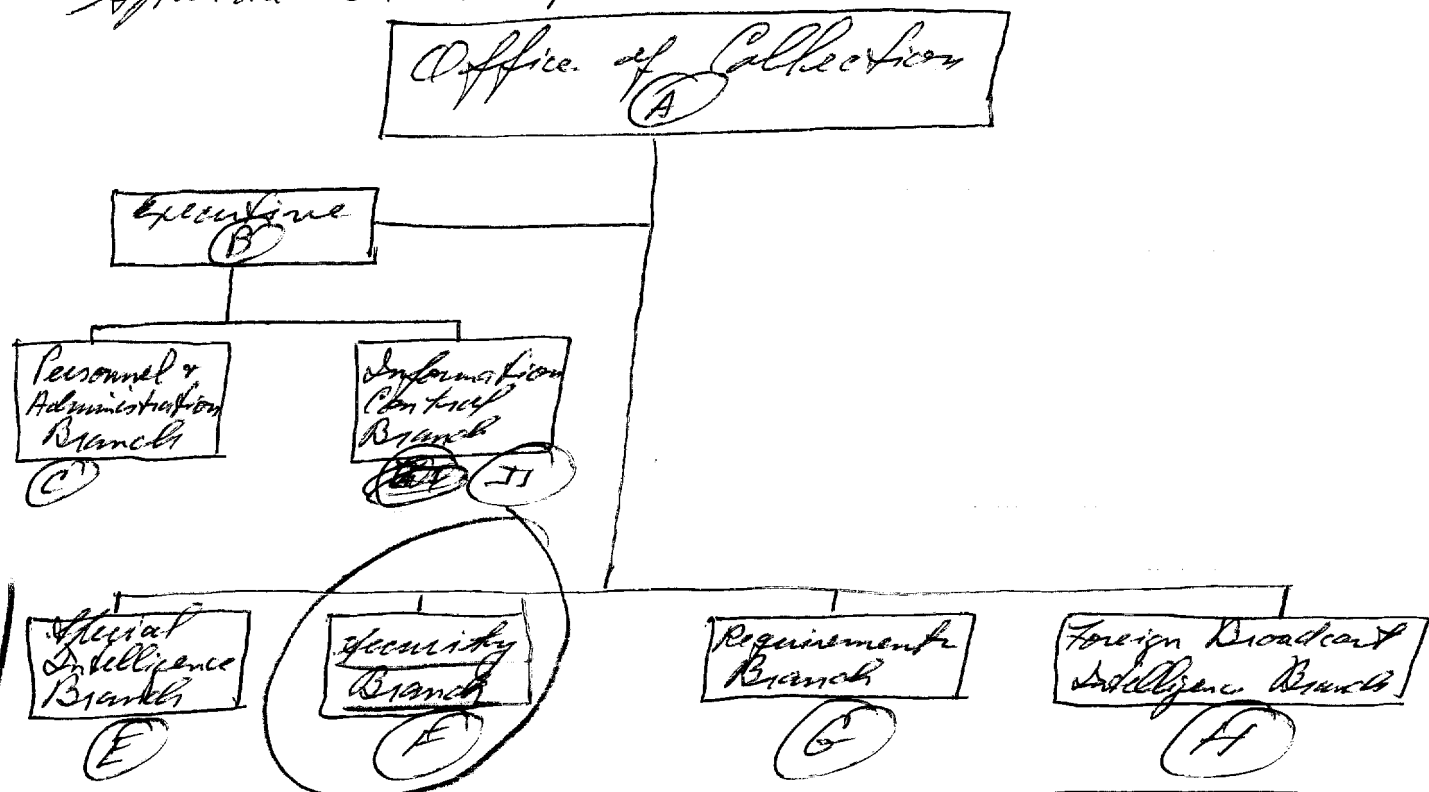 Office of Collection
A
Executive
B
Personnel &
Administration
Branch
C
Information
Control
Branch
D
Special
Intelligence
Branch
E
Security
Branch
F
Requirements
Branch
G
Foreign Broadcast
Intelligence Branch
H